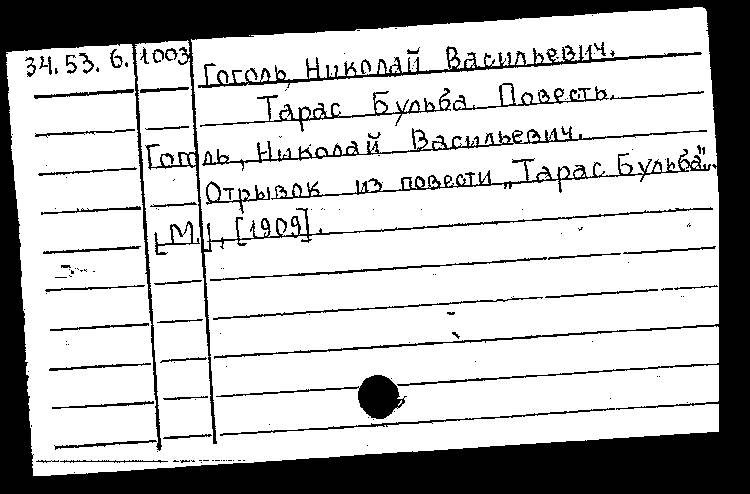 34.53.6. 1003 Гоголь, Николай Васильевич.
Тарас Бульба. Повесть.
Гоголь, Николай Васильевич.
Отрывок из повести „Тарас Бульба".
[М.], [1909].